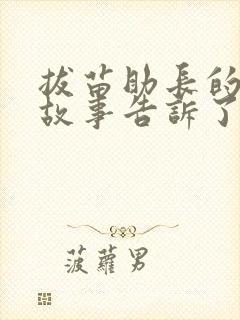 拔苗助長的
故事告訴了
菠蘿男